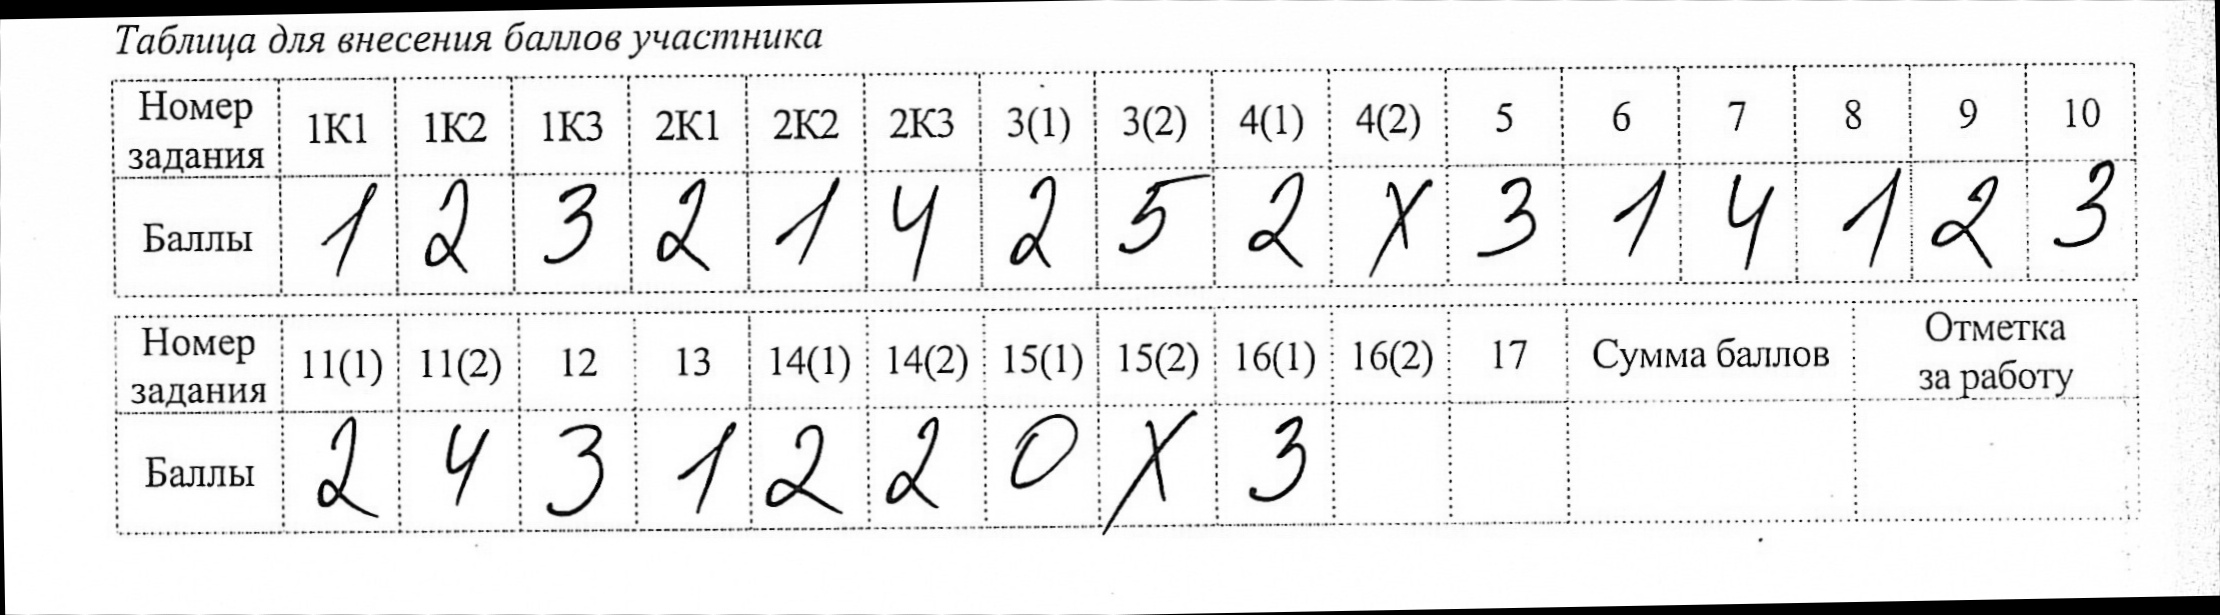 Таблица для внесения баллов участника
Номер задания 1К1 1К2 1К3 2К1 2К2 2К3 3(1) 3(2) 4(1) 4(2) 5 6 7 8 9 10
Баллы 1 2 3 2 1 4 2 5 2 X 3 1 4 1 2 3
Номер задания 11(1) 11(2) 12 13 14(1) 14(2) 15(1) 15(2) 16(1) 16(2) 17 Сумма баллов Отметка за работу
Баллы 2 4 3 1 2 2 0 X 3